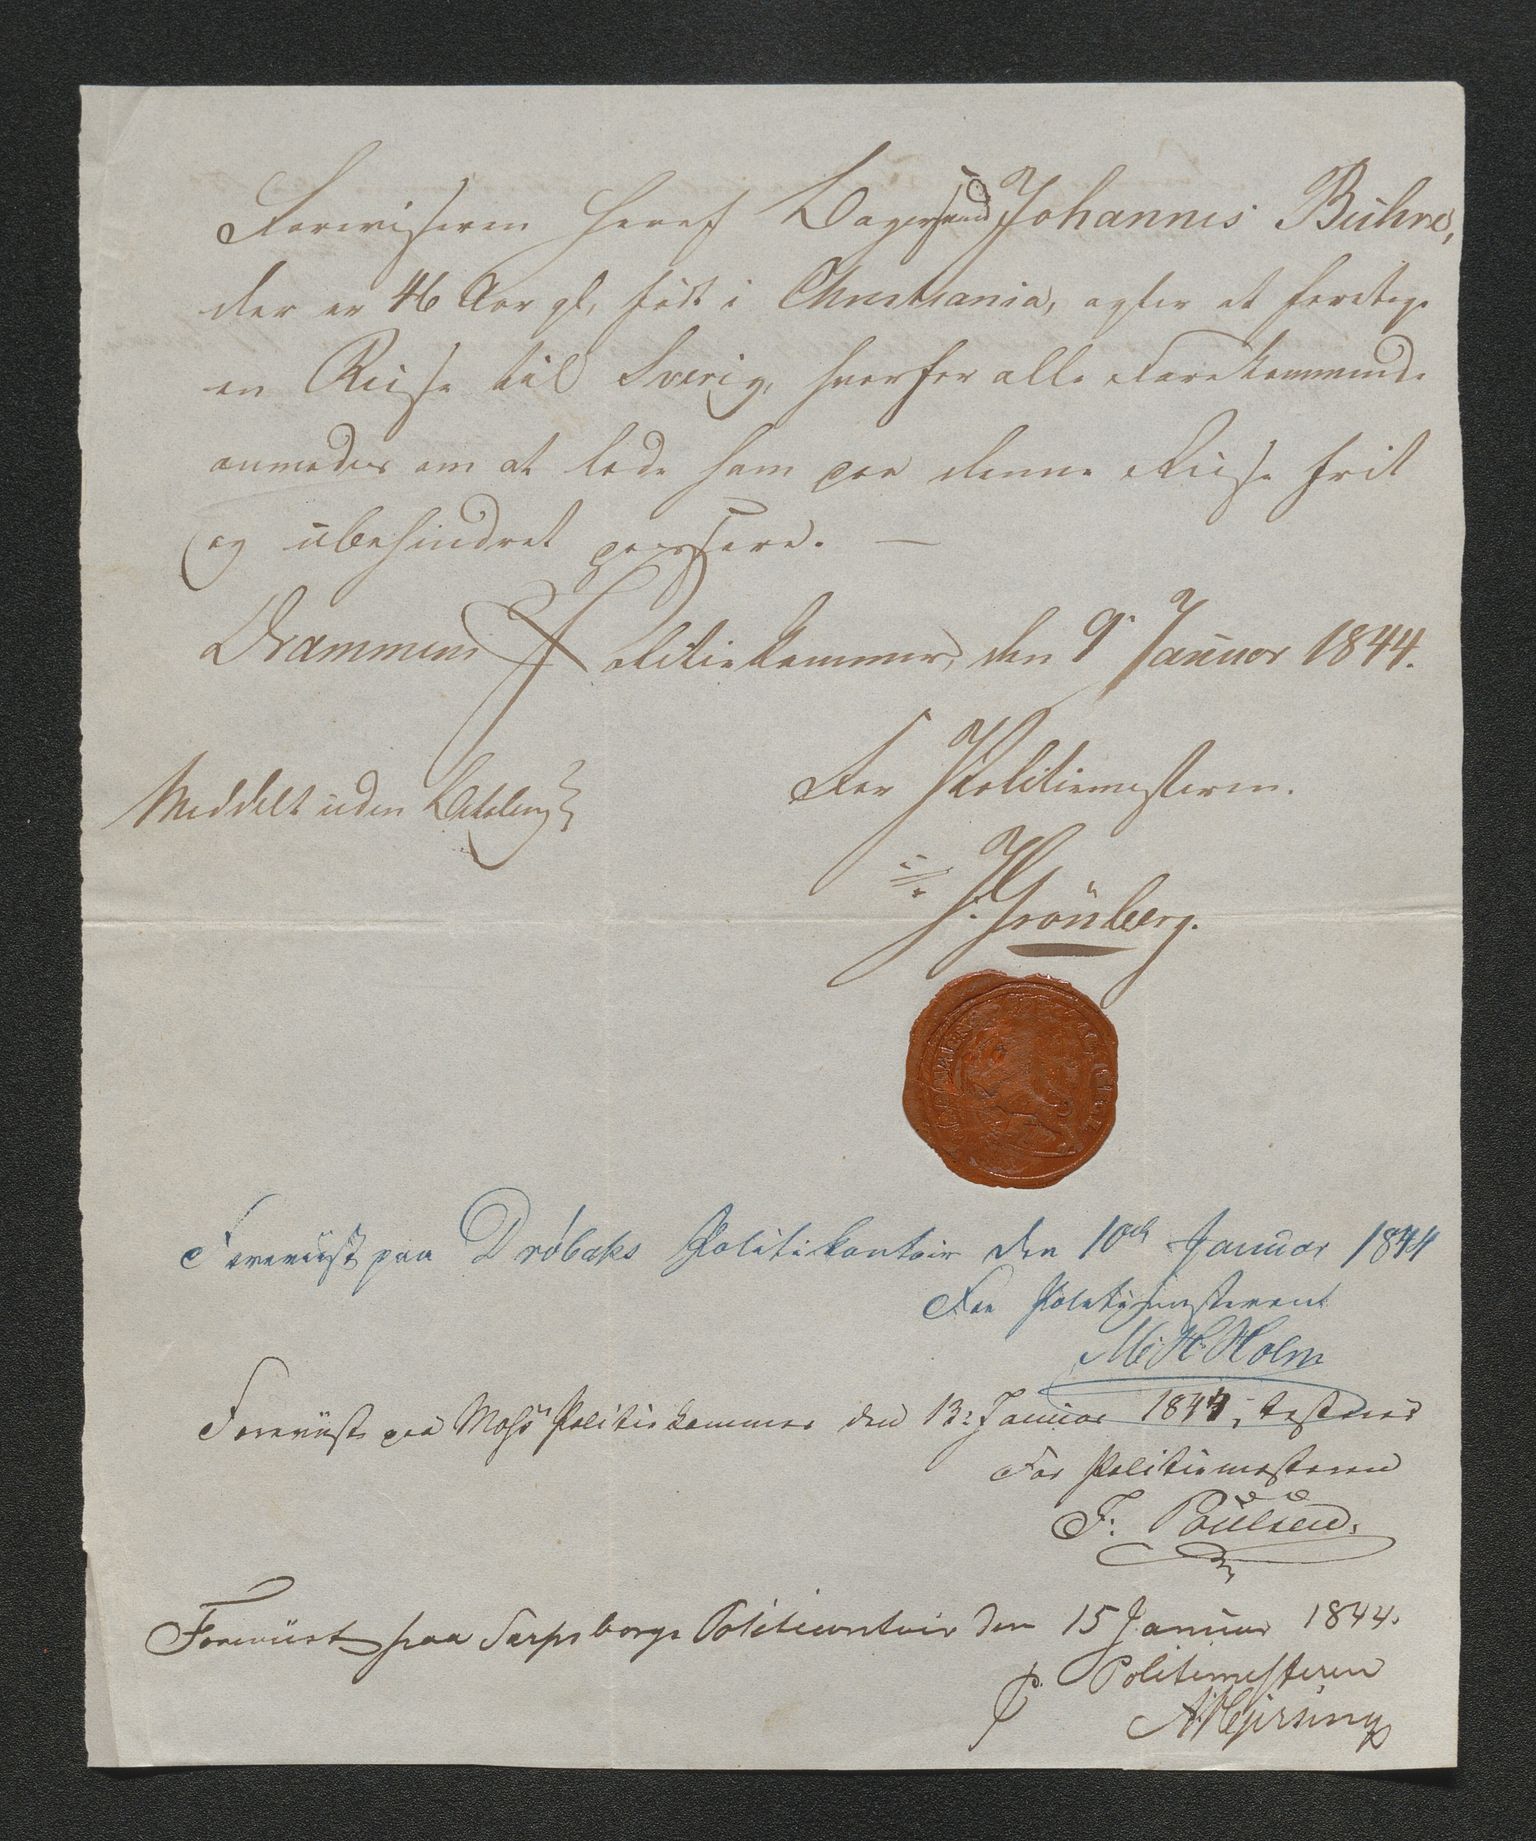 Foreviseren heraf Bagersvend Johannes Buhre,
der er 46 Aar gl, født i Christiania, agter at foretage
en Reise til Sverig, hvorfor alle Forekommende
anmodes om at lade ham paa denne Reise frit
og ubehindret passere. —
Drammens Politiekammer, den 9' Januar 1844.
For Politiemesteren.
Meddelt uden Betaling
Grönberg.
Foreviist paa Drøbaks Politikontoir den 10de Januar 1844
For Politimesteren
M. H. Holm
Foreviist paa Moss Politiekammer den 13: Januar 1844, testeres
For Politiemesteren
F. Poulsen.
Foreviist paa Sarpsborgs Politicontoir den 15 Januar 1844.
Politimesteren